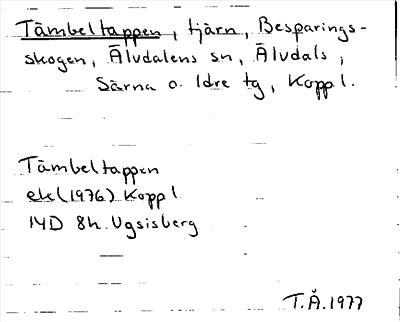 Tämbeltappen, tjärn, Besparings-
skogen, Älvdalens sn, Älvdals,
Särna o. Idre tg, Kopp l.
Tämbeltappen
ek (1976) Kopp l
14D 8h. Ugsisberg
T.Å. 1977